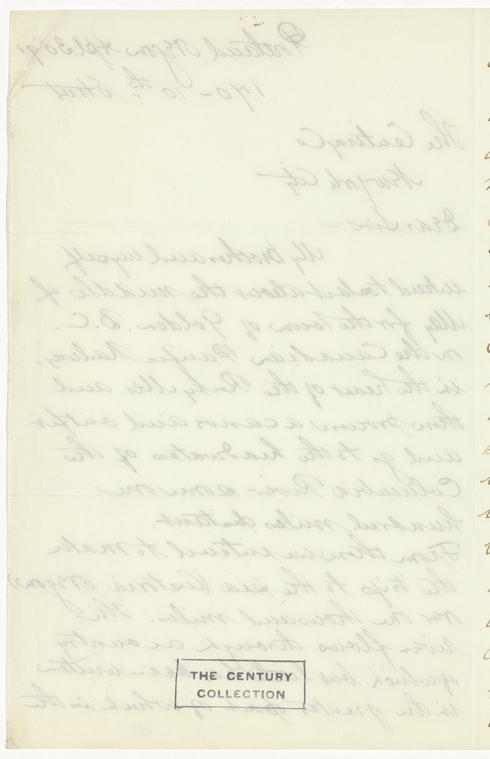 Portland, Oregon, Apl. 30 '91
190 - 10th Street
The Century Co.
New York City
Dear Sirs -
My brother and myself
intend to start about the middle of
May for the town of Golden B.C.
on the Canadian Pacific Railway,
in the heart of the Rockies and
then procure a canoe and outfit
and go to the headwaters of the
Columbia River some one
hundred miles distant.
From thence we intend to make
the trip to the sea (Astoria Oregon)
over one thousand miles. The
river flows through a country
of which but been written
in the greater part of which in the
THE CENTURY
COLLECTION